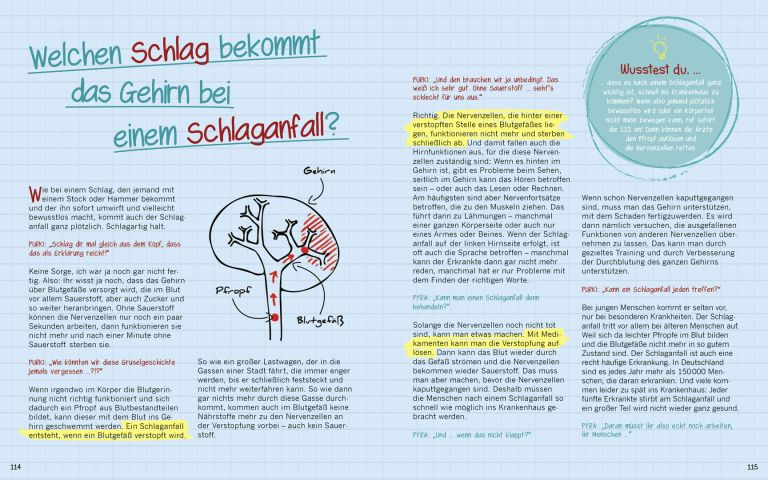 Welchen Schlag bekommt
das Gehirn bei
einem Schlaganfall?
Wie bei einem Schlag, den jemand mit
einem Stock oder Hammer bekommt
und der ihn sofort umwirft und vielleicht
bewusstlos macht, kommt auch der Schlag-
anfall ganz plötzlich. Schlagartig halt.
PURKI: „Schlag dir mal gleich aus dem Kopf, dass
das als Erklärung reicht!“
Keine Sorge, ich war ja noch gar nicht fer-
tig. Also: Ihr wisst ja noch, dass das Gehirn
über Blutgefäße versorgt wird, die im Blut
vor allem Sauerstoff, aber auch Zucker und
so weiter heranbringen. Ohne Sauerstoff
können die Nervenzellen nur noch ein paar
Sekunden arbeiten, dann funktionieren sie
nicht mehr und nach einer Minute ohne
Sauerstoff sterben sie.
PURKI: „Wie könnten wir diese Gruselgeschichte
jemals vergessen ...?!?“
Wenn irgendwo im Körper die Blutgerin-
nung nicht richtig funktioniert und sich
dadurch ein Pfropf aus Blutbestandteilen
bildet, kann dieser mit dem Blut ins Ge-
hirn geschwemmt werden. Ein Schlaganfall
entsteht, wenn ein Blutgefäß verstopft wird.
Gehirn
Pfropf
Blutgefäß
So wie ein großer Lastwagen, der in die
Gassen einer Stadt fährt, die immer enger
werden, bis er schließlich feststeckt und
nicht mehr weiterfahren kann. So wie dann
gar nichts mehr durch diese Gasse durch-
kommt, kommen auch im Blutgefäß keine
Nährstoffe mehr zu den Nervenzellen an
der Verstopfung vorbei – auch kein Sauer-
stoff.
114
PURKI: „Und den brauchen wir ja unbedingt. Das
weiß ich sehr gut. Ohne Sauerstoff ... sieht's
schlecht für uns aus.“
Richtig. Die Nervenzellen, die hinter einer
verstopften Stelle eines Blutgefäßes lie-
gen, funktionieren nicht mehr und sterben
schließlich ab. Und damit fallen auch die
Hirnfunktionen aus, für die diese Nerven-
zellen zuständig sind: Wenn es hinten im
Gehirn ist, gibt es Probleme beim Sehen,
seitlich im Gehirn kann das Hören betroffen
sein – oder auch das Lesen oder Rechnen.
Am häufigsten sind aber Nervenfortsätze
betroffen, die zu den Muskeln ziehen. Das
führt dann zu Lähmungen – manchmal
einer ganzen Körperseite oder auch nur
eines Armes oder Beines. Wenn der Schlag-
anfall auf der linken Hirnseite erfolgt, ist
oft auch die Sprache betroffen – manchmal
kann der Erkrankte dann gar nicht mehr
reden, manchmal hat er nur Probleme mit
dem Finden der richtigen Worte.
PYRA: „Kann man einen Schlaganfall denn
behandeln?“
Solange die Nervenzellen noch nicht tot
sind, kann man etwas machen. Mit Medi-
kamenten kann man die Verstopfung auf-
lösen. Dann kann das Blut wieder durch
das Gefäß strömen und die Nervenzellen
bekommen wieder Sauerstoff. Das muss
man aber machen, bevor die Nervenzellen
kaputtgegangen sind. Deshalb müssen
die Menschen nach einem Schlaganfall so
schnell wie möglich ins Krankenhaus ge-
bracht werden.
PYRA: „Und ... wenn das nicht klappt?“
Wusstest du, ...
... dass es nach einem Schlaganfall ganz
wichtig ist, schnell ins Krankenhaus zu
kommen? Wenn also jemand plötzlich
bewusstlos wird oder ein Körperteil
nicht mehr bewegen kann, ruf sofort
die 112 an! Dann können die Ärzte
den Pfropf auflösen und
die Nervenzellen retten.
Wenn schon Nervenzellen kaputtgegangen
sind, muss man das Gehirn unterstützen,
mit dem Schaden fertigzuwerden. Es wird
dann nämlich versuchen, die ausgefallenen
Funktionen von anderen Nervenzellen über-
nehmen zu lassen. Das kann man durch
gezieltes Training und durch Verbesserung
der Durchblutung des ganzen Gehirns
unterstützen.
PURKI: „Kann ein Schlaganfall jeden treffen?“
Bei jungen Menschen kommt er selten vor,
nur bei besonderen Krankheiten. Der Schlag-
anfall tritt vor allem bei älteren Menschen auf.
Weil sich da leichter Pfropfe im Blut bilden
und die Blutgefäße nicht mehr in so gutem
Zustand sind. Der Schlaganfall ist auch eine
recht häufige Erkrankung. In Deutschland
sind es jedes Jahr mehr als 150000 Men-
schen, die daran erkranken. Und viele kom-
men leider zu spät ins Krankenhaus: Jeder
fünfte Erkrankte stirbt am Schlaganfall und
ein großer Teil wird nicht wieder ganz gesund.
PYRA: „Daran müsst ihr also echt noch arbeiten,
ihr Menschen ...“
115